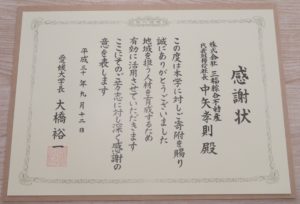 感謝状
株式会社 三福綜合不動産
代表取締役社長 中矢孝則 殿
この度は本学に対しご寄附を賜り
誠にありがとうございました
地域を担う人材を育成するため
有効に活用させていただきます
ここにそのご芳志に対し深く感謝の
意を表します
平成三十年九月十二日
愛媛大学長 大橋裕一